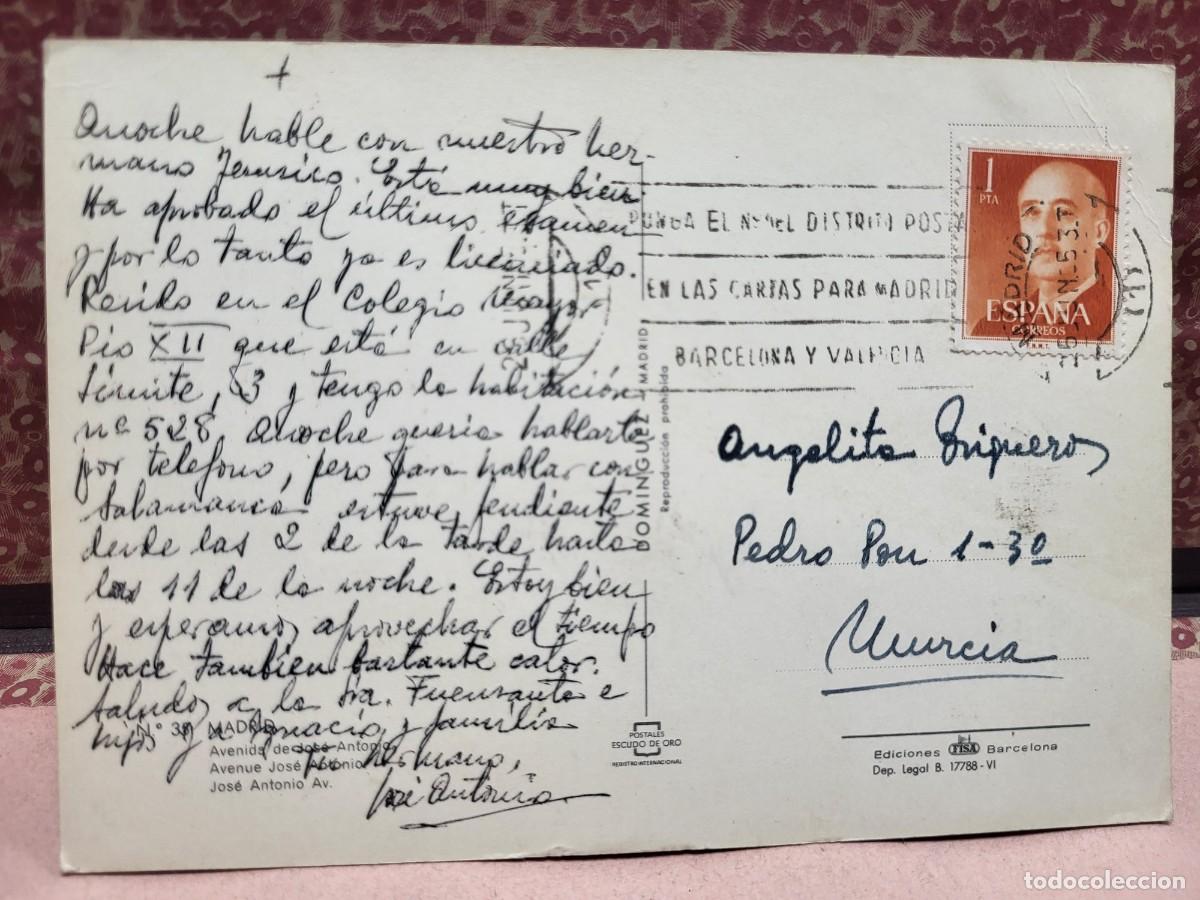 +
Anoche hable con nuestro her-
mano Jesusico. Está muy bien
Ha aprobado el último examen
y por lo tanto ya es licenciado.
Resido en el Colegio Mayor
Pio XII que está en calle
Límite, 3 y tengo la habitación
nº 528. Anoche queria hablarte
por telefono, pero para hablar con
Salamanca estuve pendiente
desde las 2 de la tarde hasta
las 11 de la noche. Estoy bien
y esperamos aprovechar el tiempo
Hace tambien bastante calor.
Saludos a la Sra. Fuensanta e
hijos y a Ignacio y familia
tu hermano,
José Antonio
N.º 39 MADRID
Avenida de José Antonio
Avenue José Antonio
José Antonio Av.
DOMINGUEZ - MADRID
Reproducción prohibida
POSTALES
ESCUDO DE ORO
REGISTRO INTERNACIONAL
PONGA EL N. DEL DISTRITO POSTAL
EN LAS CARTAS PARA MADRID
BARCELONA Y VALENCIA
MADRID
1
PTA
ESPAÑA
CORREOS
Angelita Brigueros
Pedro Pou 1-3º
Murcia
Ediciones FISA Barcelona
Dep. Legal B. 17788-VI
todocoleccion